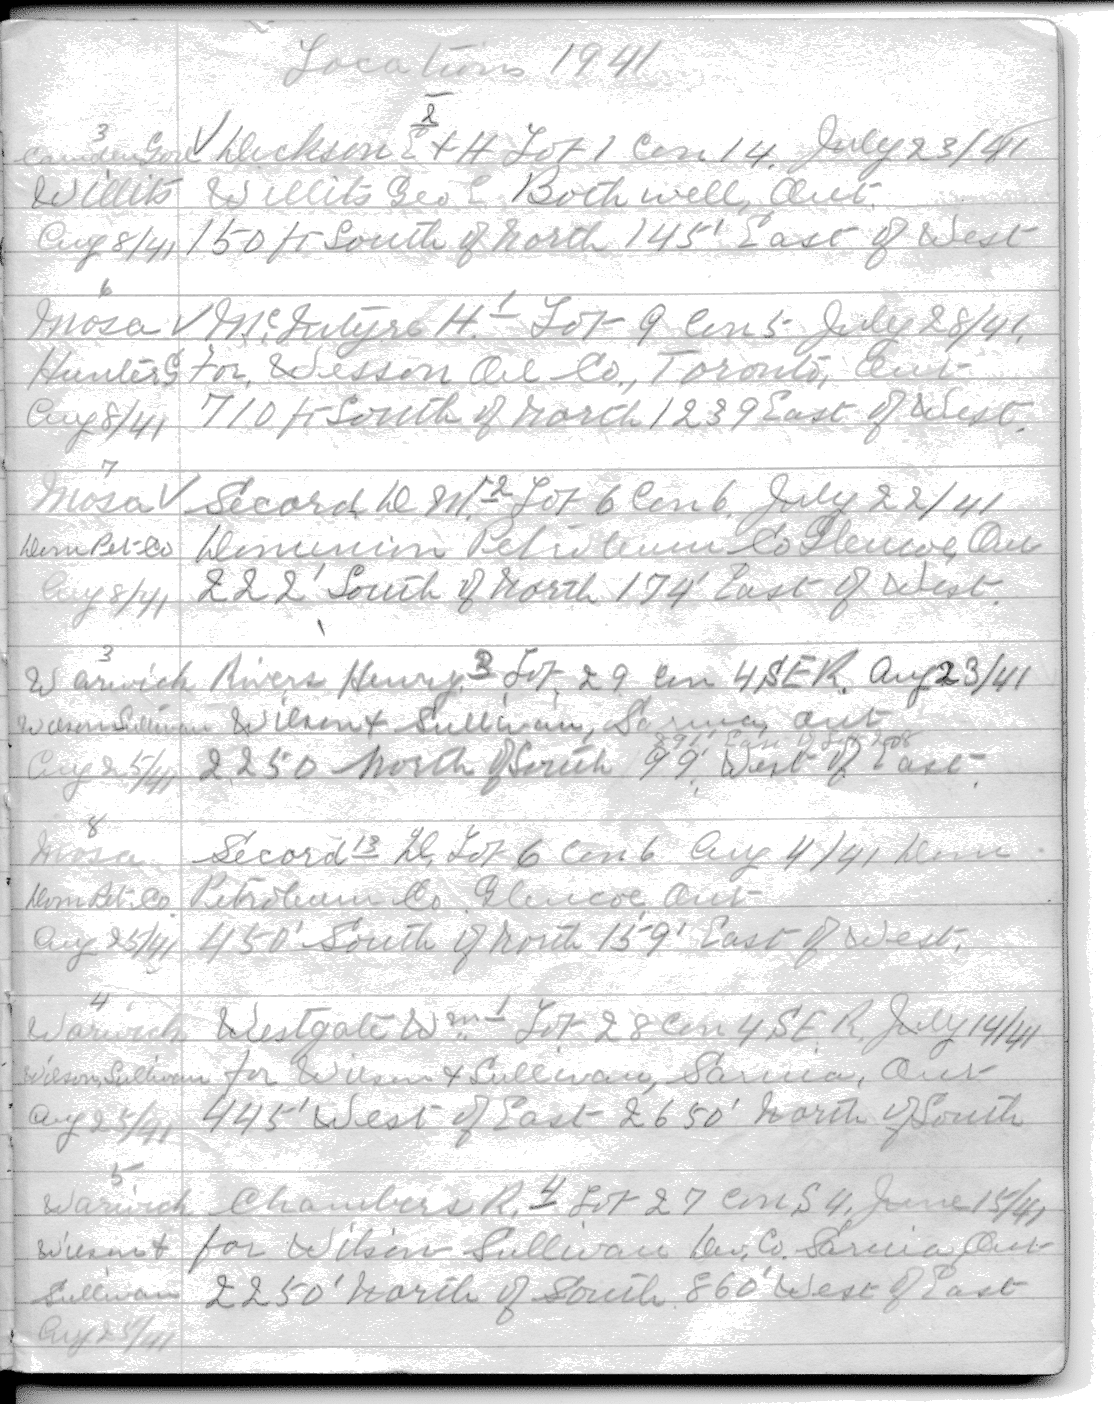 Locations 1941
3 2
Camden Gore √ Dickson E + H Lot 1 Con 14. July 23/41
Willits Willits Geo E Bothwell, Ont.
Aug 8/41 150 ft South of North 145' East of West
6
Mosa √ McIntyre H. 1 Lot 9 Con 5 July 28/41.
Hunter G For, Wesson Oil Co., Toronto, Ont
Aug 8/41 710 ft South of North 1239 East of West.
7
Mosa √ Secord, D M. 12 Lot 6 Con 6. July 22/41
Dom Pet. Co Dominion Petroleum Co Glencoe, Ont
Aug 8/41 222' South of North 174' East of West.
3
Warwick Rivers Henry. 3 Lot. 29 Con 4 S E R. Aug 23/41
Wilson Sullivan Wilson & Sullivan, Sarnia, Ont
Aug 25/41 2250 North of South 99' West of East.
8
Mosa Secord 13 D, Lot 6 Con 6 Aug 4/41 Dom.
Dom Pet. Co. Petroleum Co. Glencoe, Ont
Aug 25/41 450' South of North 159' East of West.
4
Warwick Westgate Wm. 1 Lot 28 Con 4 S E. R. July 14/41
Wilson, Sullivan for Wilson & Sullivan, Sarnia, Ont
Aug 25/41 445' West of East 2650' North of South
5
Warwick Chambers R. 4 Lot 27 Con S 4, June 15/41
Wilson & for Wilson Sullivan Dev. Co. Sarnia, Ont
Sullivan 2250' North of South 860' West of East
Aug 25/41